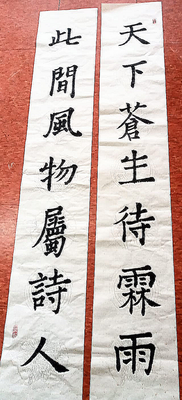 天下蒼生待霖雨
此間風物屬詩人